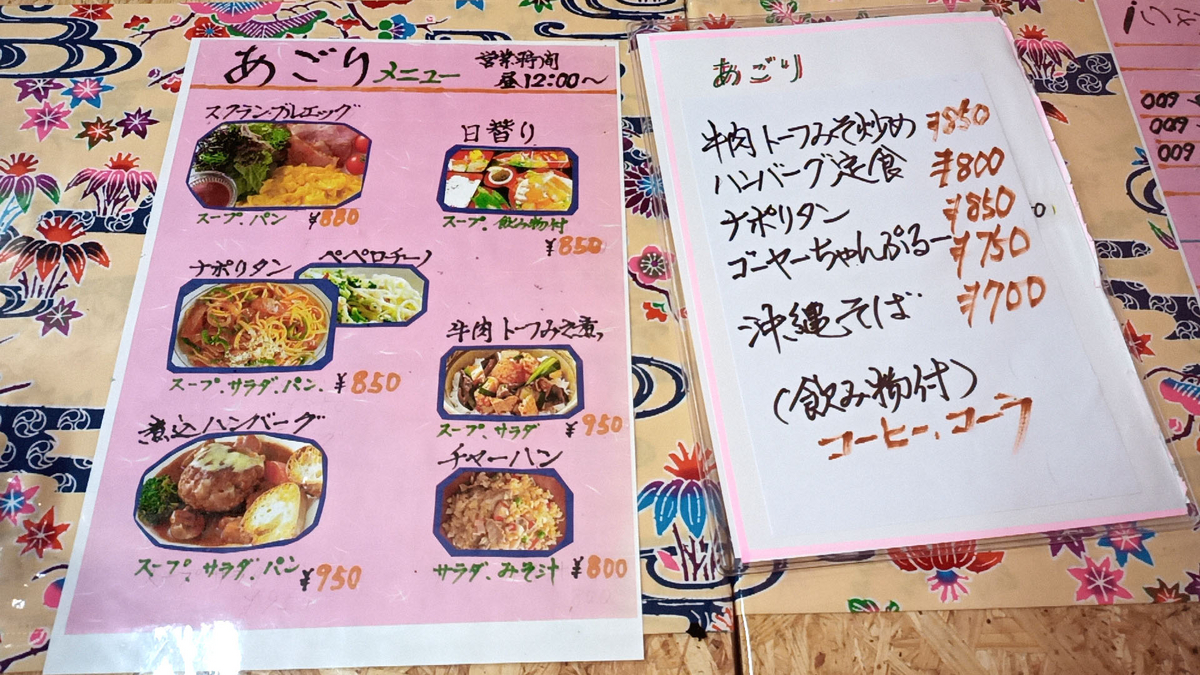 あごり メニュー
営業時間
昼12:00～
スクランブルエッグ
スープ、パン ¥880
日替り
スープ、飲み物付
¥850
ナポリタン
ペペロチーノ
スープ、サラダ、パン、 ¥850
牛肉トーフみそ煮
スープ、サラダ ¥950
煮込ハンバーグ
スープ、サラダ、パン ¥950
チャーハン
サラダ、みそ汁 ¥800
あごり
牛肉トーフみそ炒め ¥850
ハンバーグ定食 ¥800
ナポリタン ¥850
ゴーヤーちゃんぷるー ¥750
沖縄そば ¥700
(飲み物付)
コーヒー、コーラ